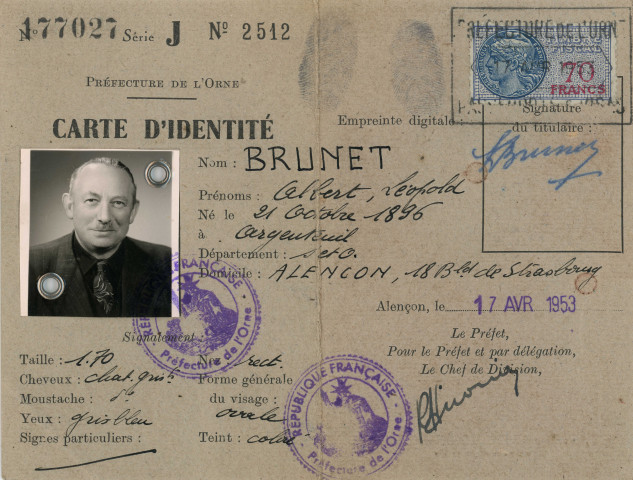 N° 177027 Série J N° 2512
PRÉFECTURE DE L'ORNE
CARTE D'IDENTITÉ
PRÉFECTURE DE L'ORN
70
FRANCS
Empreinte digitale :
Signature
du titulaire :
Brunet
Nom : BRUNET
Prénoms : Albert, Léopold
Né le 21 Octobre 1896
à Argenteuil
Département : S et O.
Domicile : ALENCON, 18 Bld de Strasbourg
Alençon, le 17 AVR 1953
Le Préfet,
Pour le Préfet et par délégation,
Le Chef de Division,
Signalement :
Taille : 1.70
Cheveux : chat. gris
Moustache : do
Yeux : gris bleu
Signes particuliers :
Nez : rect.
Forme générale
du visage :
ovale
Teint : coloré
RÉPUBLIQUE FRANÇAISE
Préfecture de l'Orne
RÉPUBLIQUE FRANÇAISE
Préfecture de l'Orne